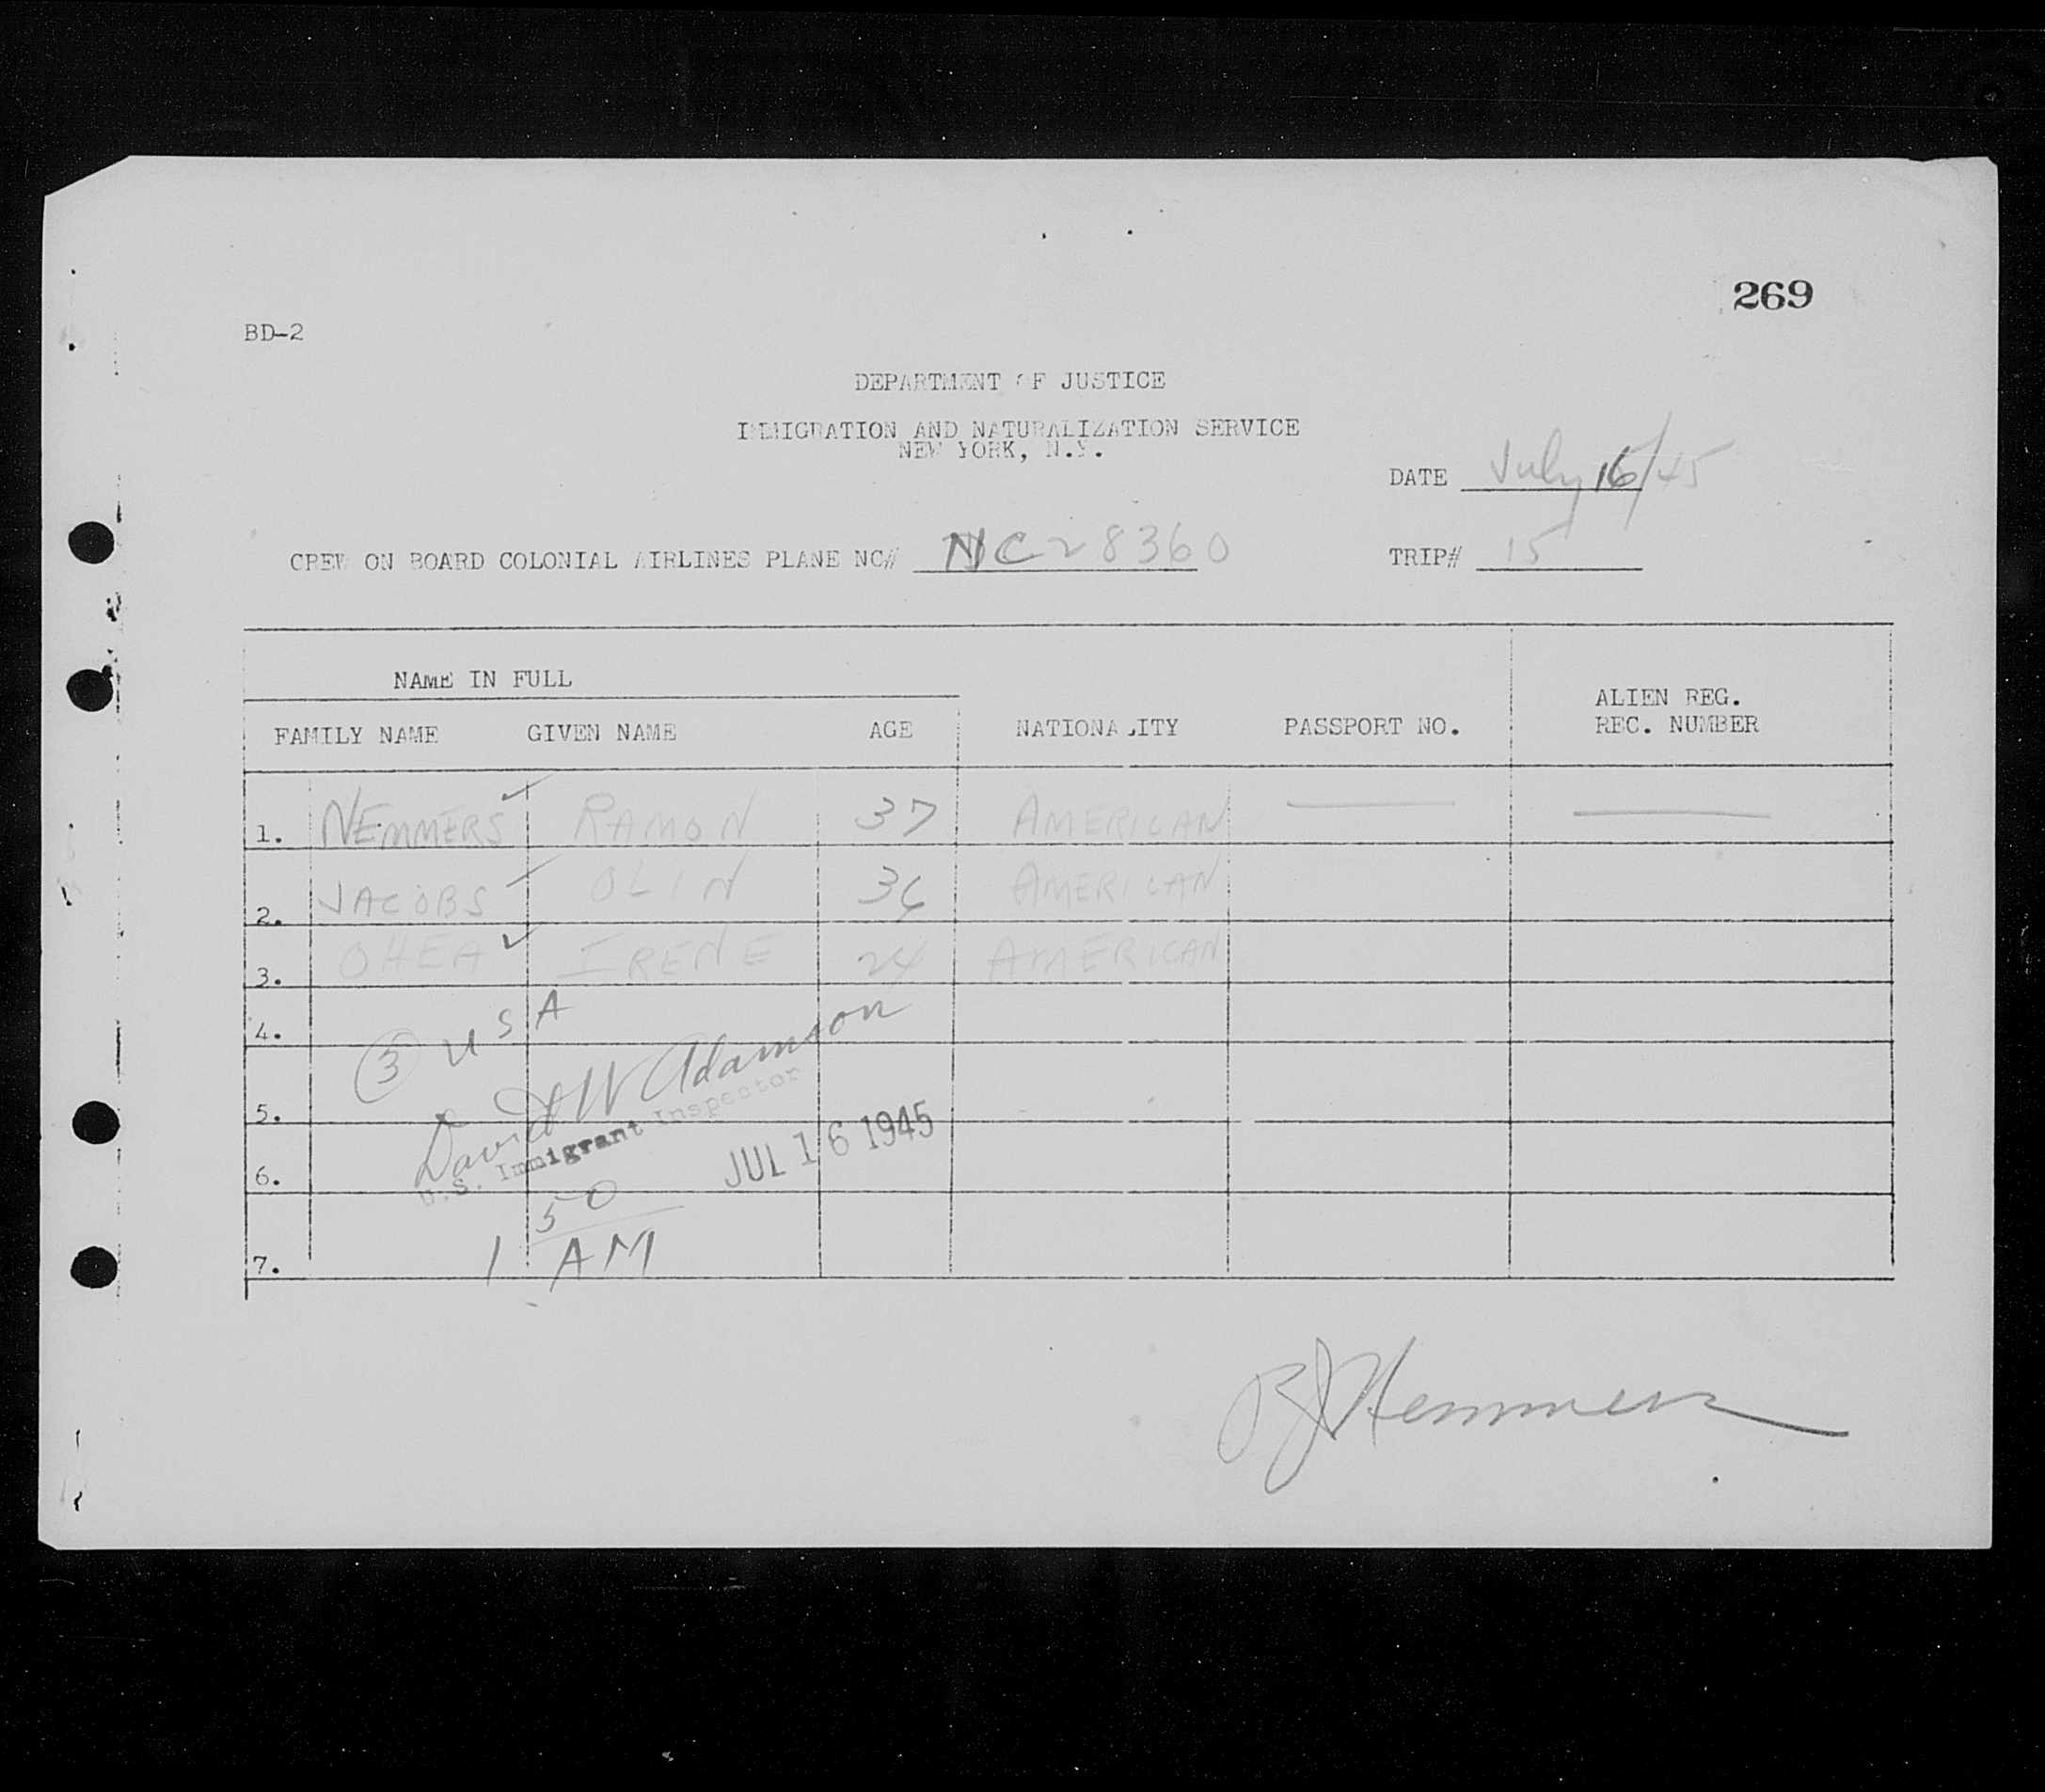 269
BD-2
DEPARTMENT OF JUSTICE
IMMIGRATION AND NATURALIZATION SERVICE
NEW YORK, N.Y.
DATE July 16/45
CREW ON BOARD COLONIAL AIRLINES PLANE NC# NC28360 TRIP# 15
NAME IN FULL
FAMILY NAME GIVEN NAME AGE NATIONALITY PASSPORT NO. ALIEN REG. REC. NUMBER
1. NEMMERS ✓ RAMON 37 AMERICAN — —
2. JACOBS ✓ OLIN 36 AMERICAN
3. OHEA ✓ IRENE 24 AMERICAN
4.
③ USA
David W Adamson
5.
U.S. Immigrant Inspector
JUL 16 1945
6.
1 50 AM
7.
RJ Nemmers